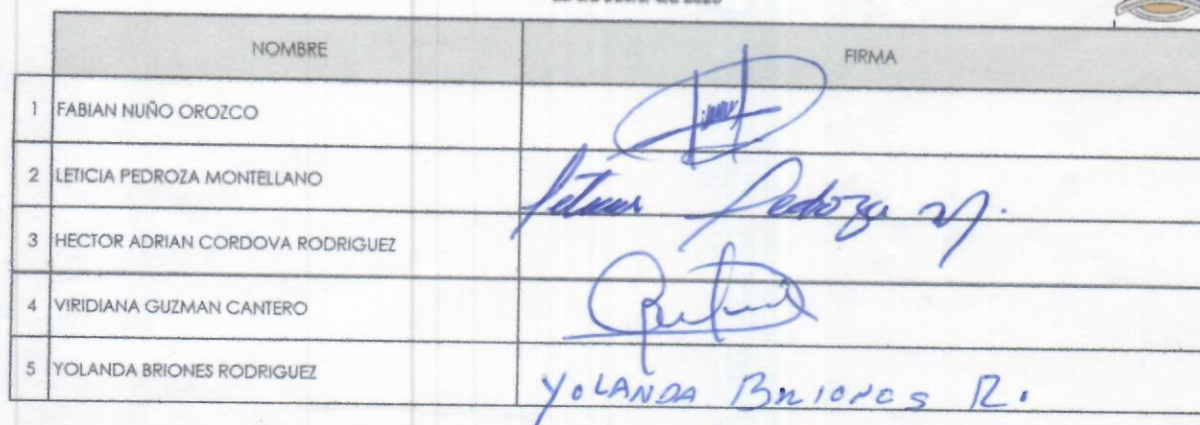 NOMBRE FIRMA
1 FABIAN NUÑO OROZCO
2 LETICIA PEDROZA MONTELLANO Pedroza M.
3 HECTOR ADRIAN CORDOVA RODRIGUEZ
4 VIRIDIANA GUZMAN CANTERO
5 YOLANDA BRIONES RODRIGUEZ YOLANDA BRIONES R.